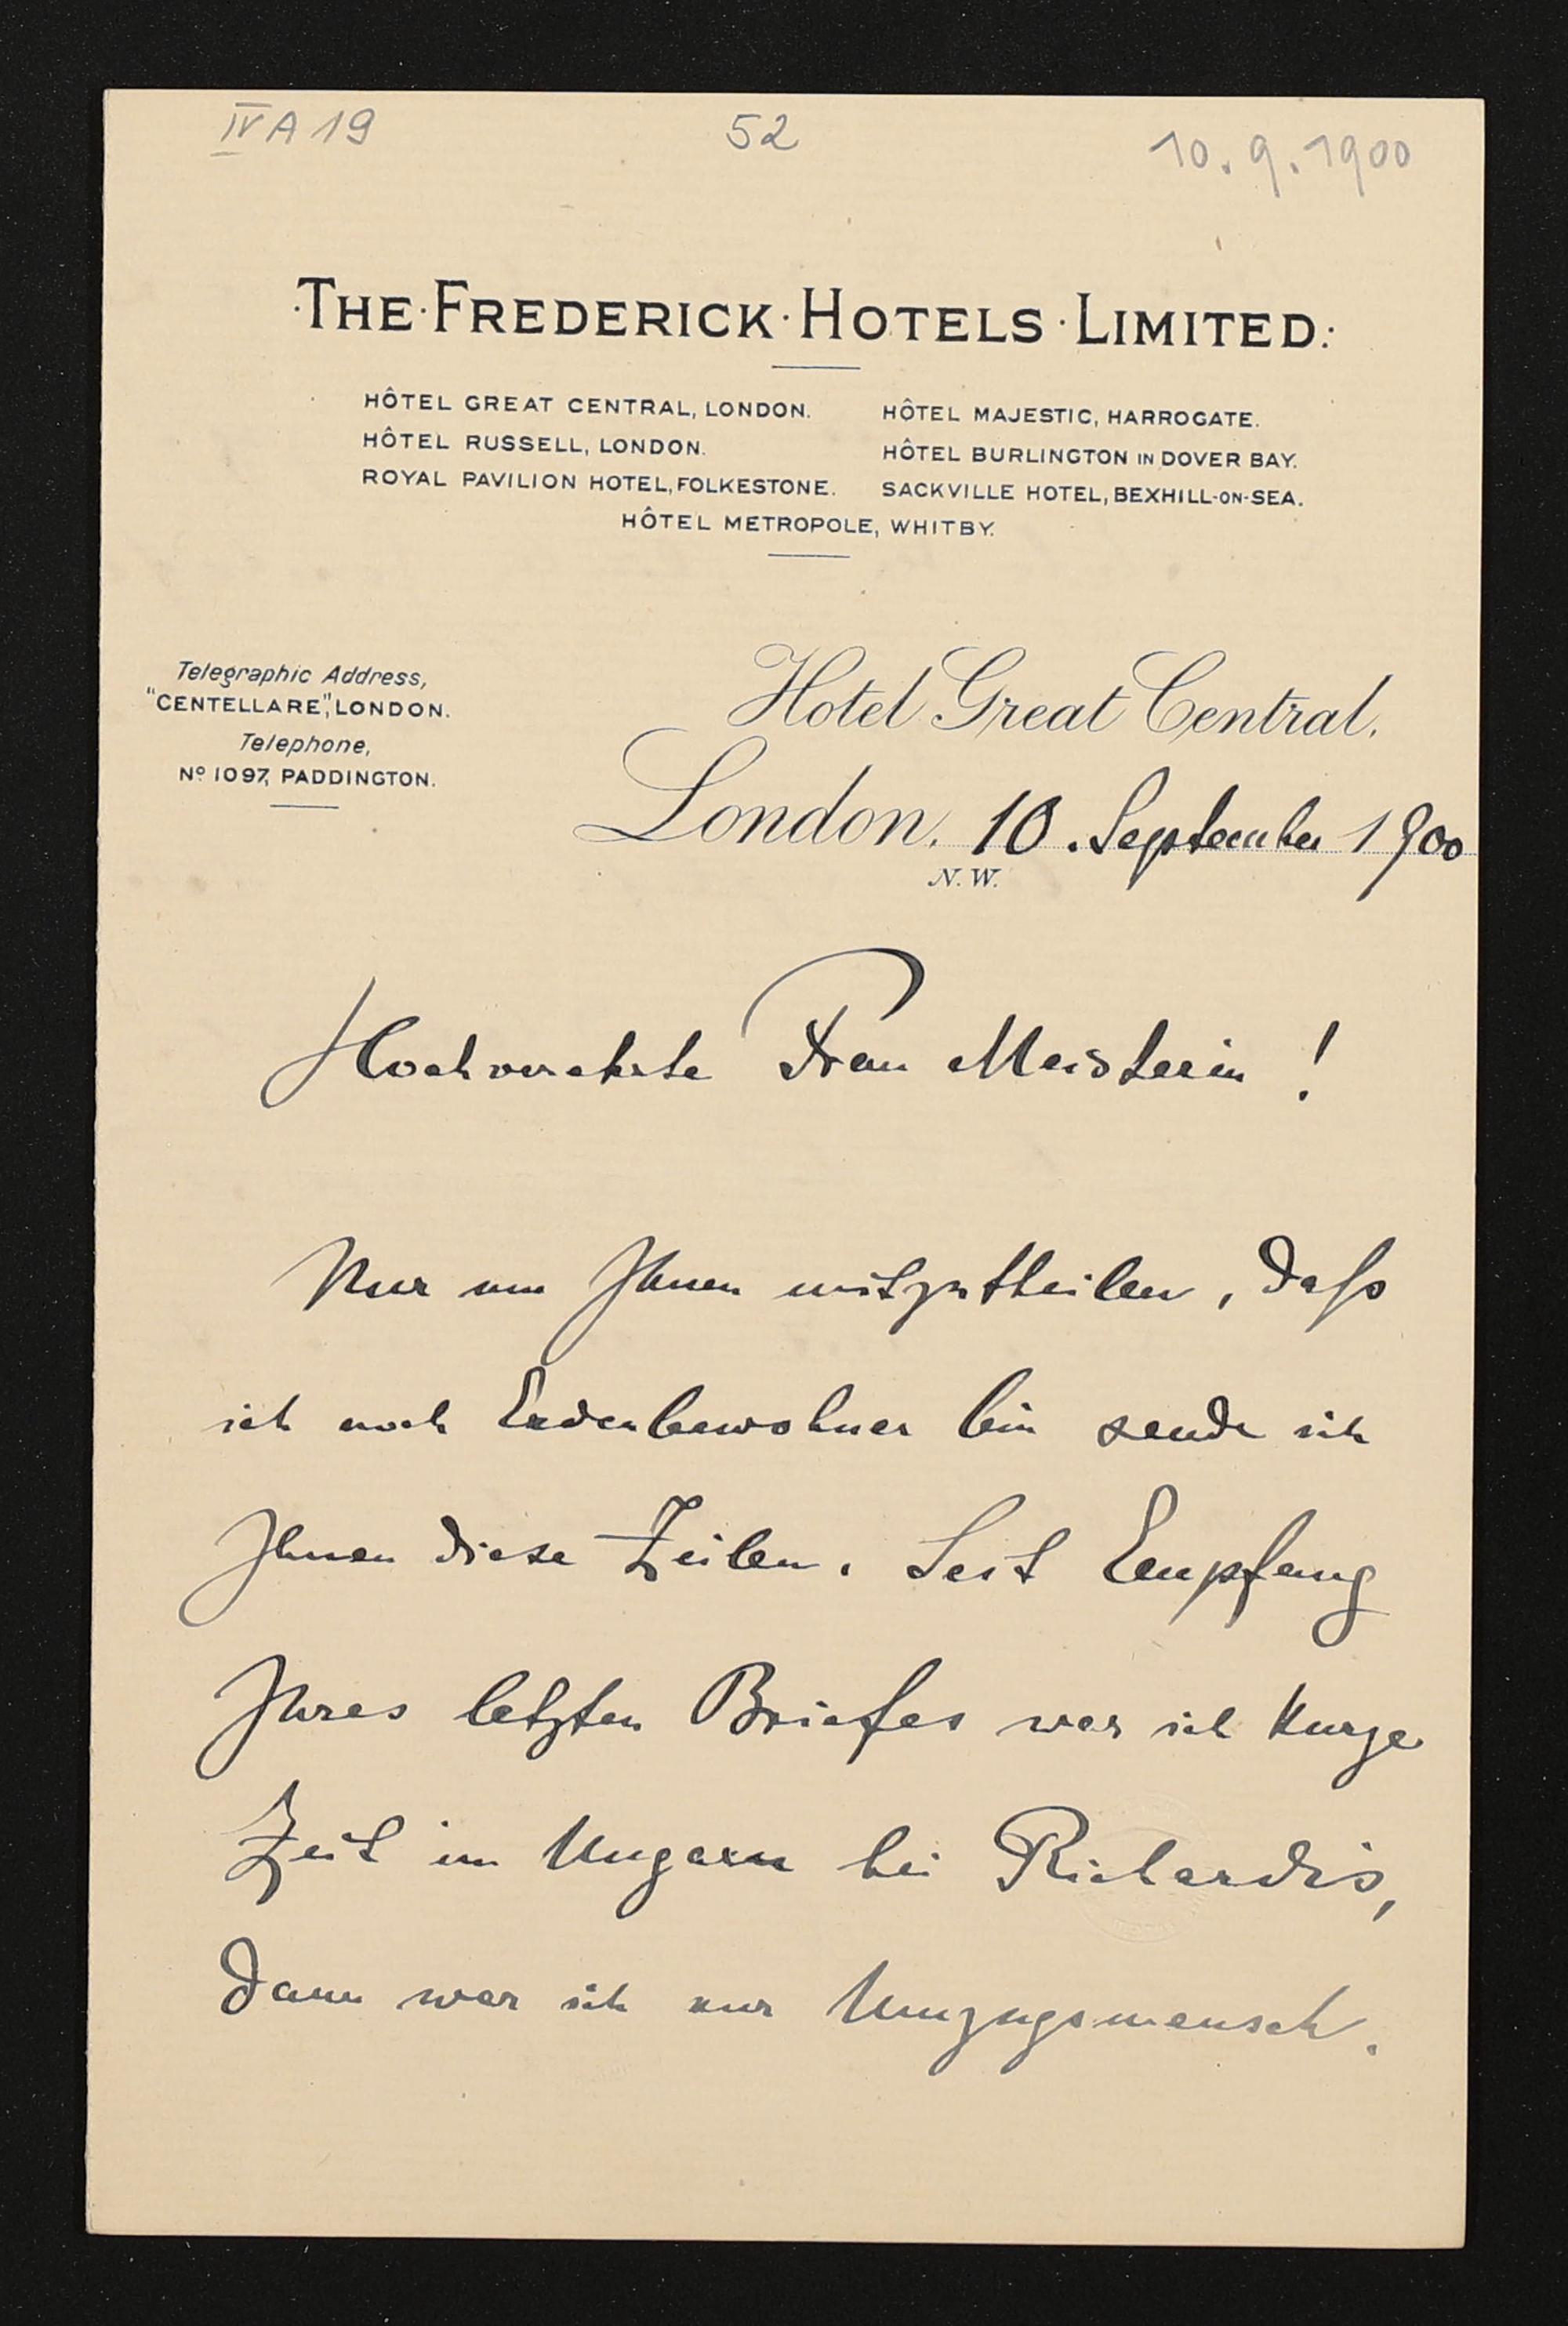 IV A 19 52 10.9.1900
·THE·FREDERICK·HOTELS·LIMITED:
HÔTEL GREAT CENTRAL, LONDON. HÔTEL MAJESTIC, HARROGATE.
HÔTEL RUSSELL, LONDON. HÔTEL BURLINGTON IN DOVER BAY.
ROYAL PAVILION HOTEL, FOLKESTONE. SACKVILLE HOTEL, BEXHILL-ON-SEA.
HÔTEL METROPOLE, WHITBY.
Telegraphic Address,
"CENTELLARE", LONDON.
Telephone,
Nº 1097, PADDINGTON.
Hotel Great Central,
London, 10. September 1900
N.W.
Hochverehrte Frau Meisterin!
Nur um Ihnen mitzutheilen, daß
ich noch Erdenbewohner bin sende ich
Ihnen diese Zeilen. Seit Empfang
Ihres letzten Briefes war ich kurze
Zeit in Ungarn bei Richardis,
dann war ich nur Umzugsmensch.